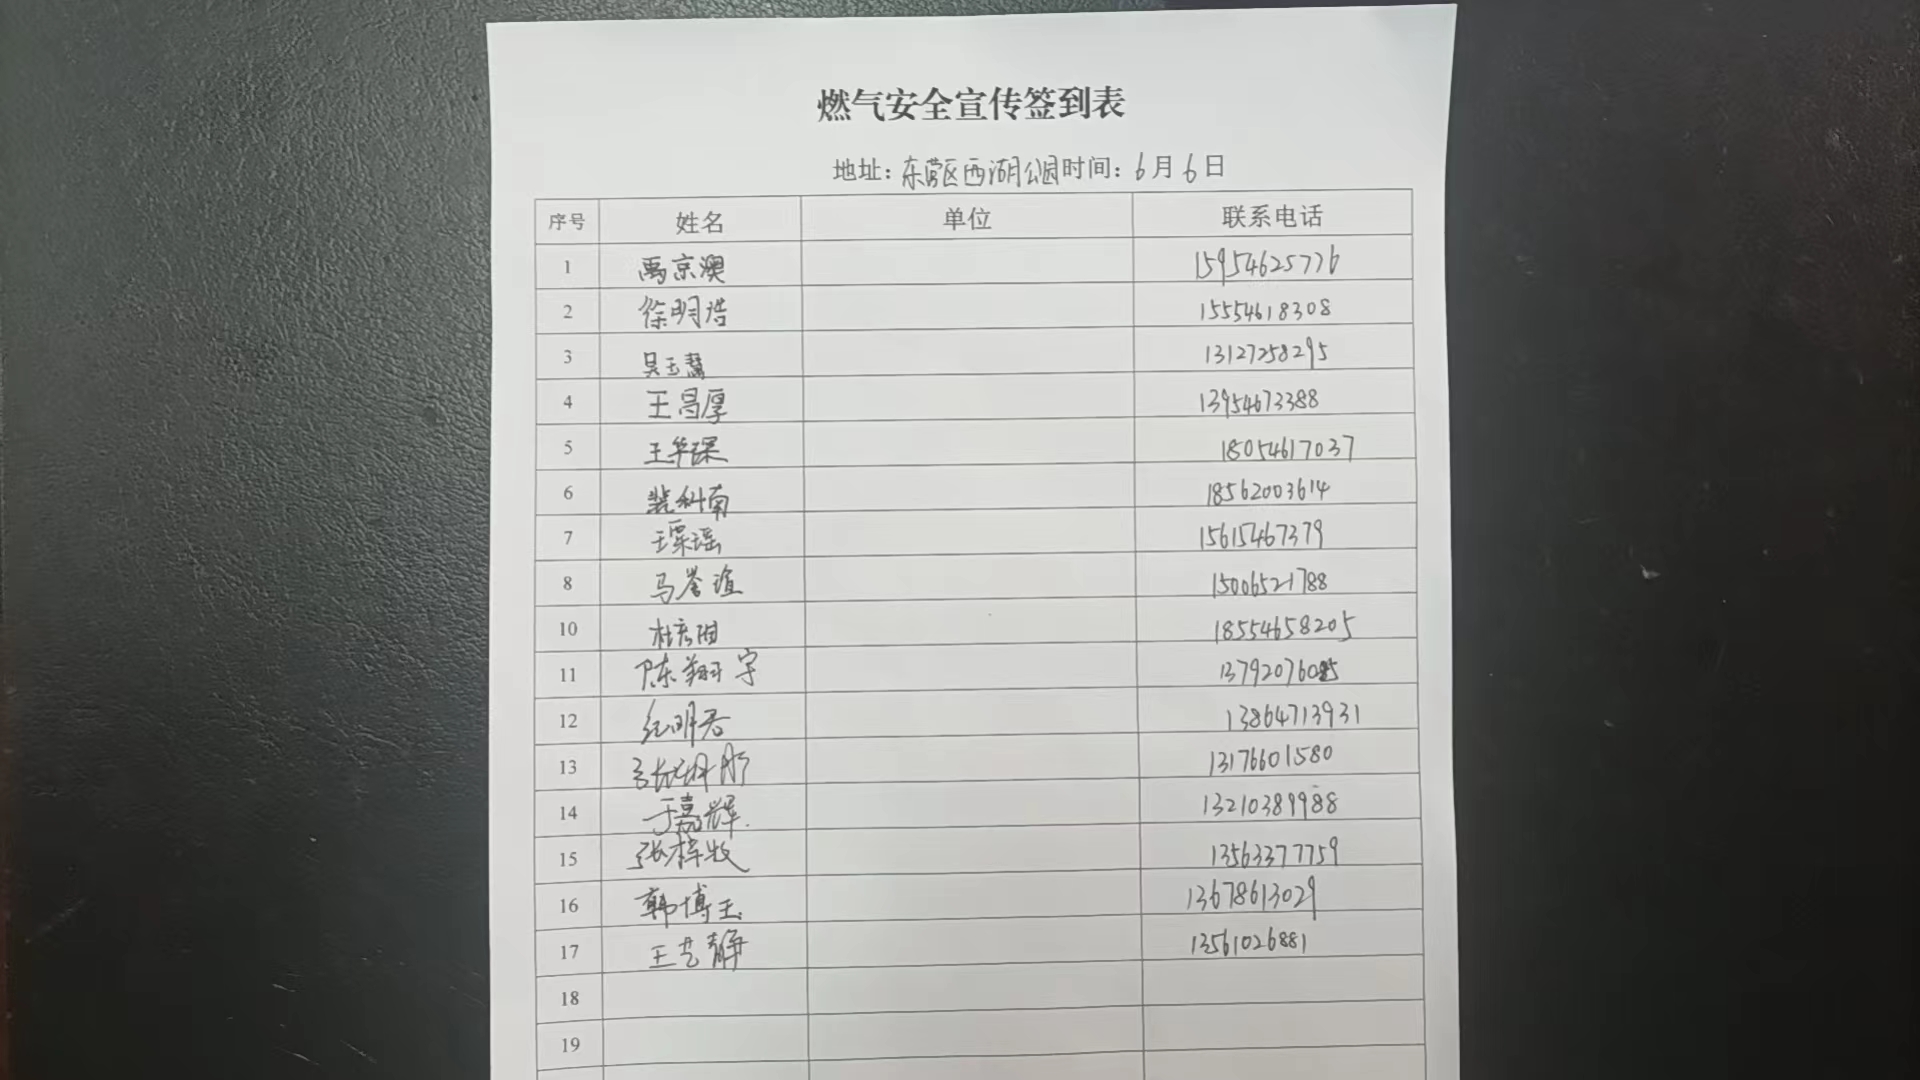 燃气安全宣传签到表
地址：东营区西湖公园时间：6月6日
序号 姓名 单位 联系电话
1 禹京澳 15954625776
2 徐明浩 15554618308
3 吴玉慧 13127258295
4 王昌厚 13954673388
5 王华琛 18054617037
6 裴科南 18562003614
7 王栗瑶 15615467379
8 马誉谊 15006521788
10 18554658205
11 陈翔宇 137920760
12 纪明君 13864713931
13 13176601580
14 于嘉辉. 13210389988
15 张梓牧 13563377759
16 韩博玉 13678613029
17 王艺静 13561026881
18
19